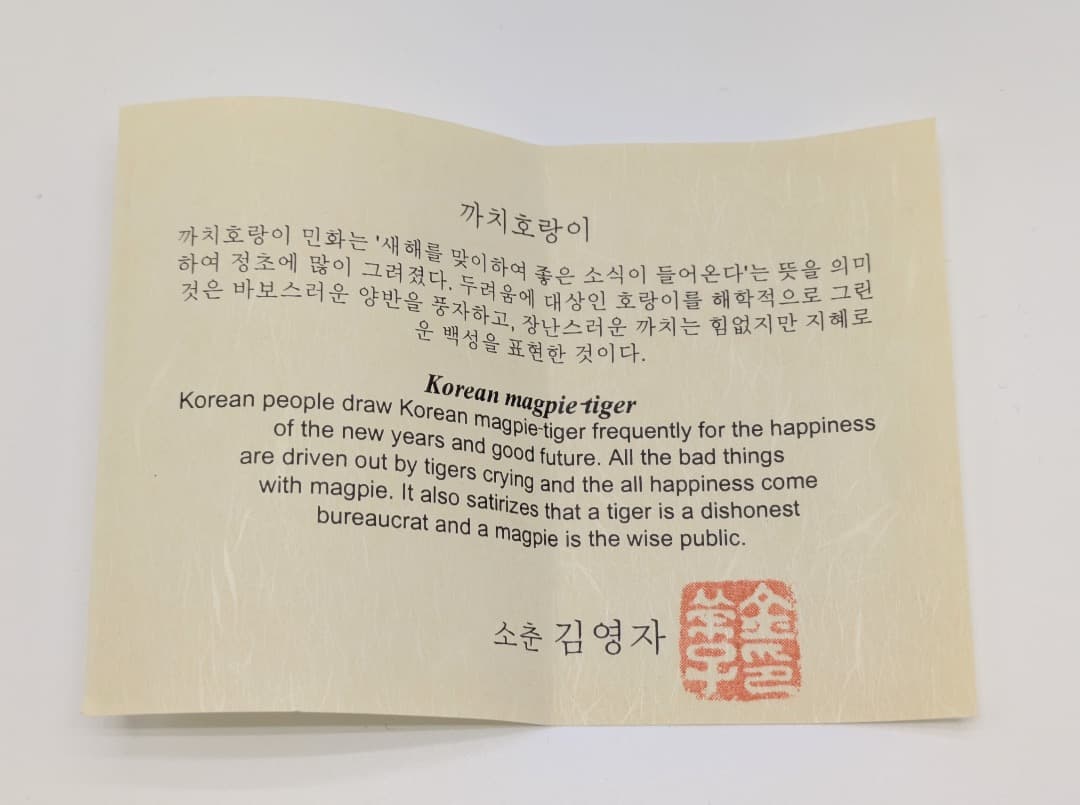 까치호랑이
까치호랑이 민화는 '새해를 맞이하여 좋은 소식이 들어온다'는 뜻을 의미
하여 정초에 많이 그려졌다. 두려움에 대상인 호랑이를 해학적으로 그린
것은 바보스러운 양반을 풍자하고, 장난스러운 까치는 힘없지만 지혜로
운 백성을 표현한 것이다.
Korean magpie-tiger
Korean people draw Korean magpie-tiger frequently for the happiness
of the new years and good future. All the bad things
are driven out by tigers crying and the all happiness come
with magpie. It also satirizes that a tiger is a dishonest
bureaucrat and a magpie is the wise public.
소춘 김영자